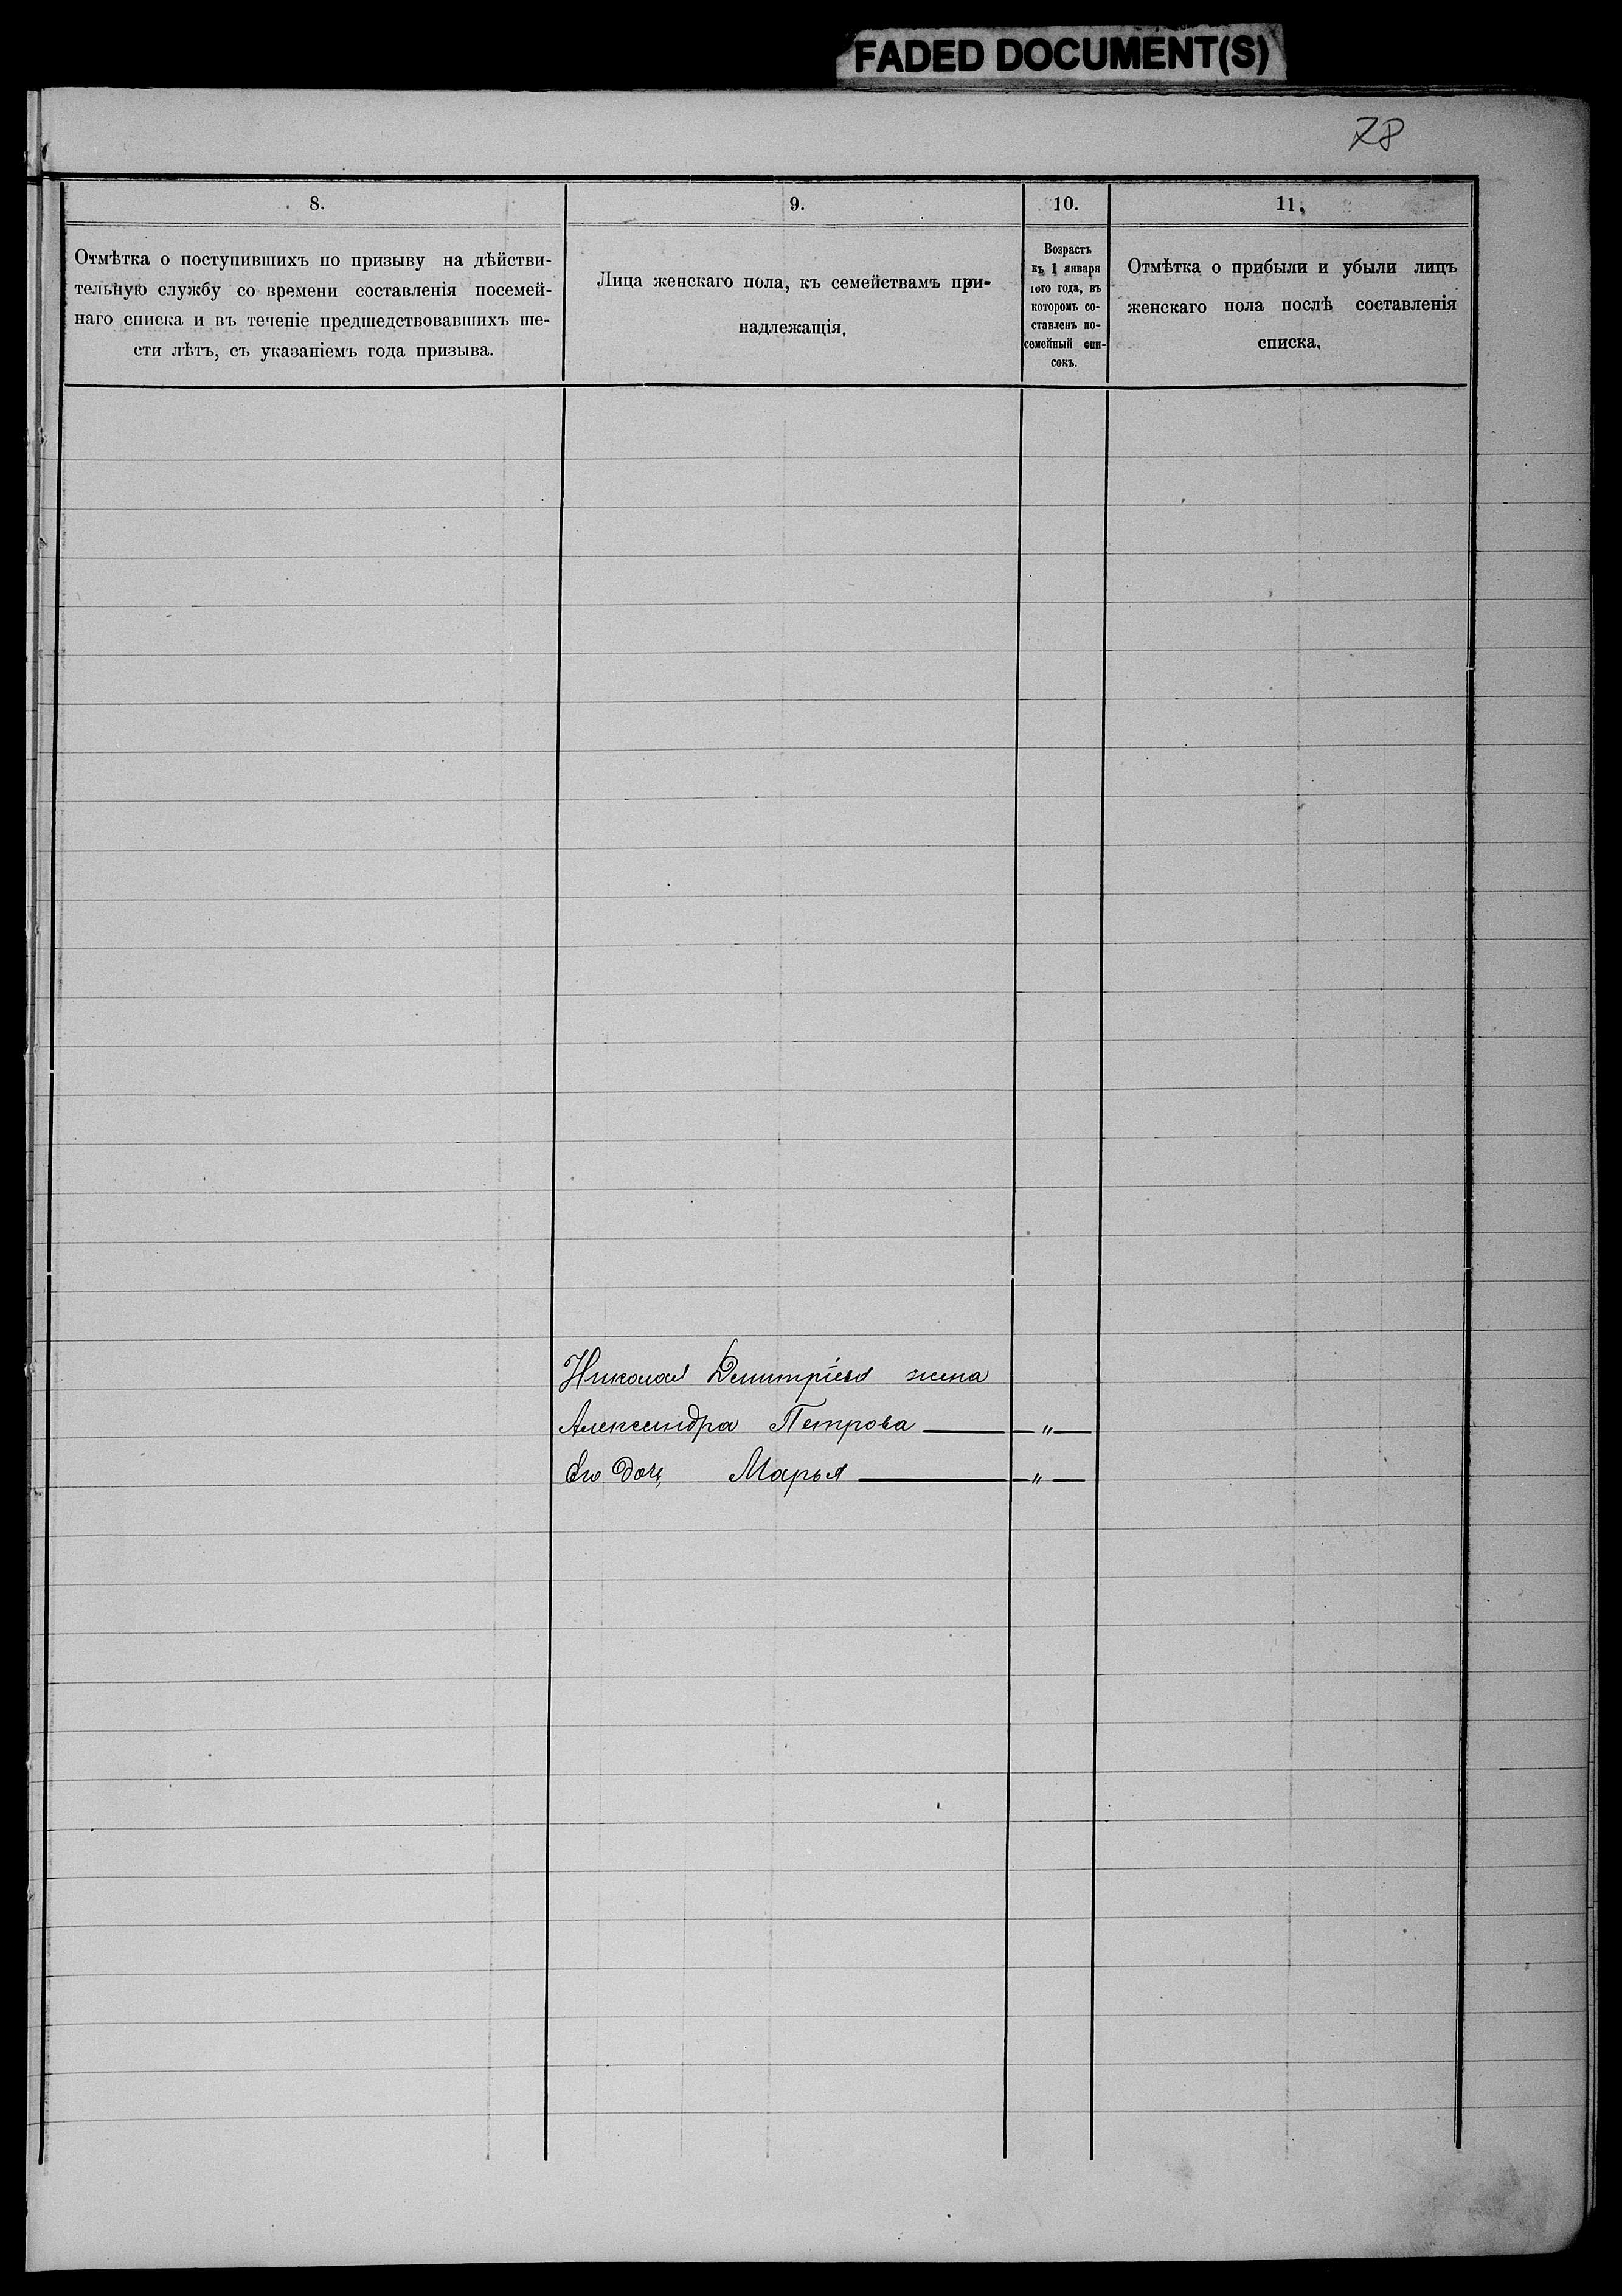 FADED DOCUMENT(S)
78
8.
Отмѣтка о поступившихъ по призыву на дѣйстви-
тельную службу со времени составленія посемей-
наго списка и въ теченіе предшедствовавшихъ ше-
сти лѣтъ, съ указаніемъ года призыва.
9.
Лица женскаго пола, къ семействамъ при-
надлежащія,
10.
Возрастъ
къ 1 января
того года, въ
которомъ со-
ставленъ по-
семейный спи-
сокъ.
11.
Отмѣтка о прибыли и убыли лицъ
женскаго пола послѣ составленія
списка.
Николая Дмитріева жена
Александра Петрова — „ —
Его дочь Марья — „ —